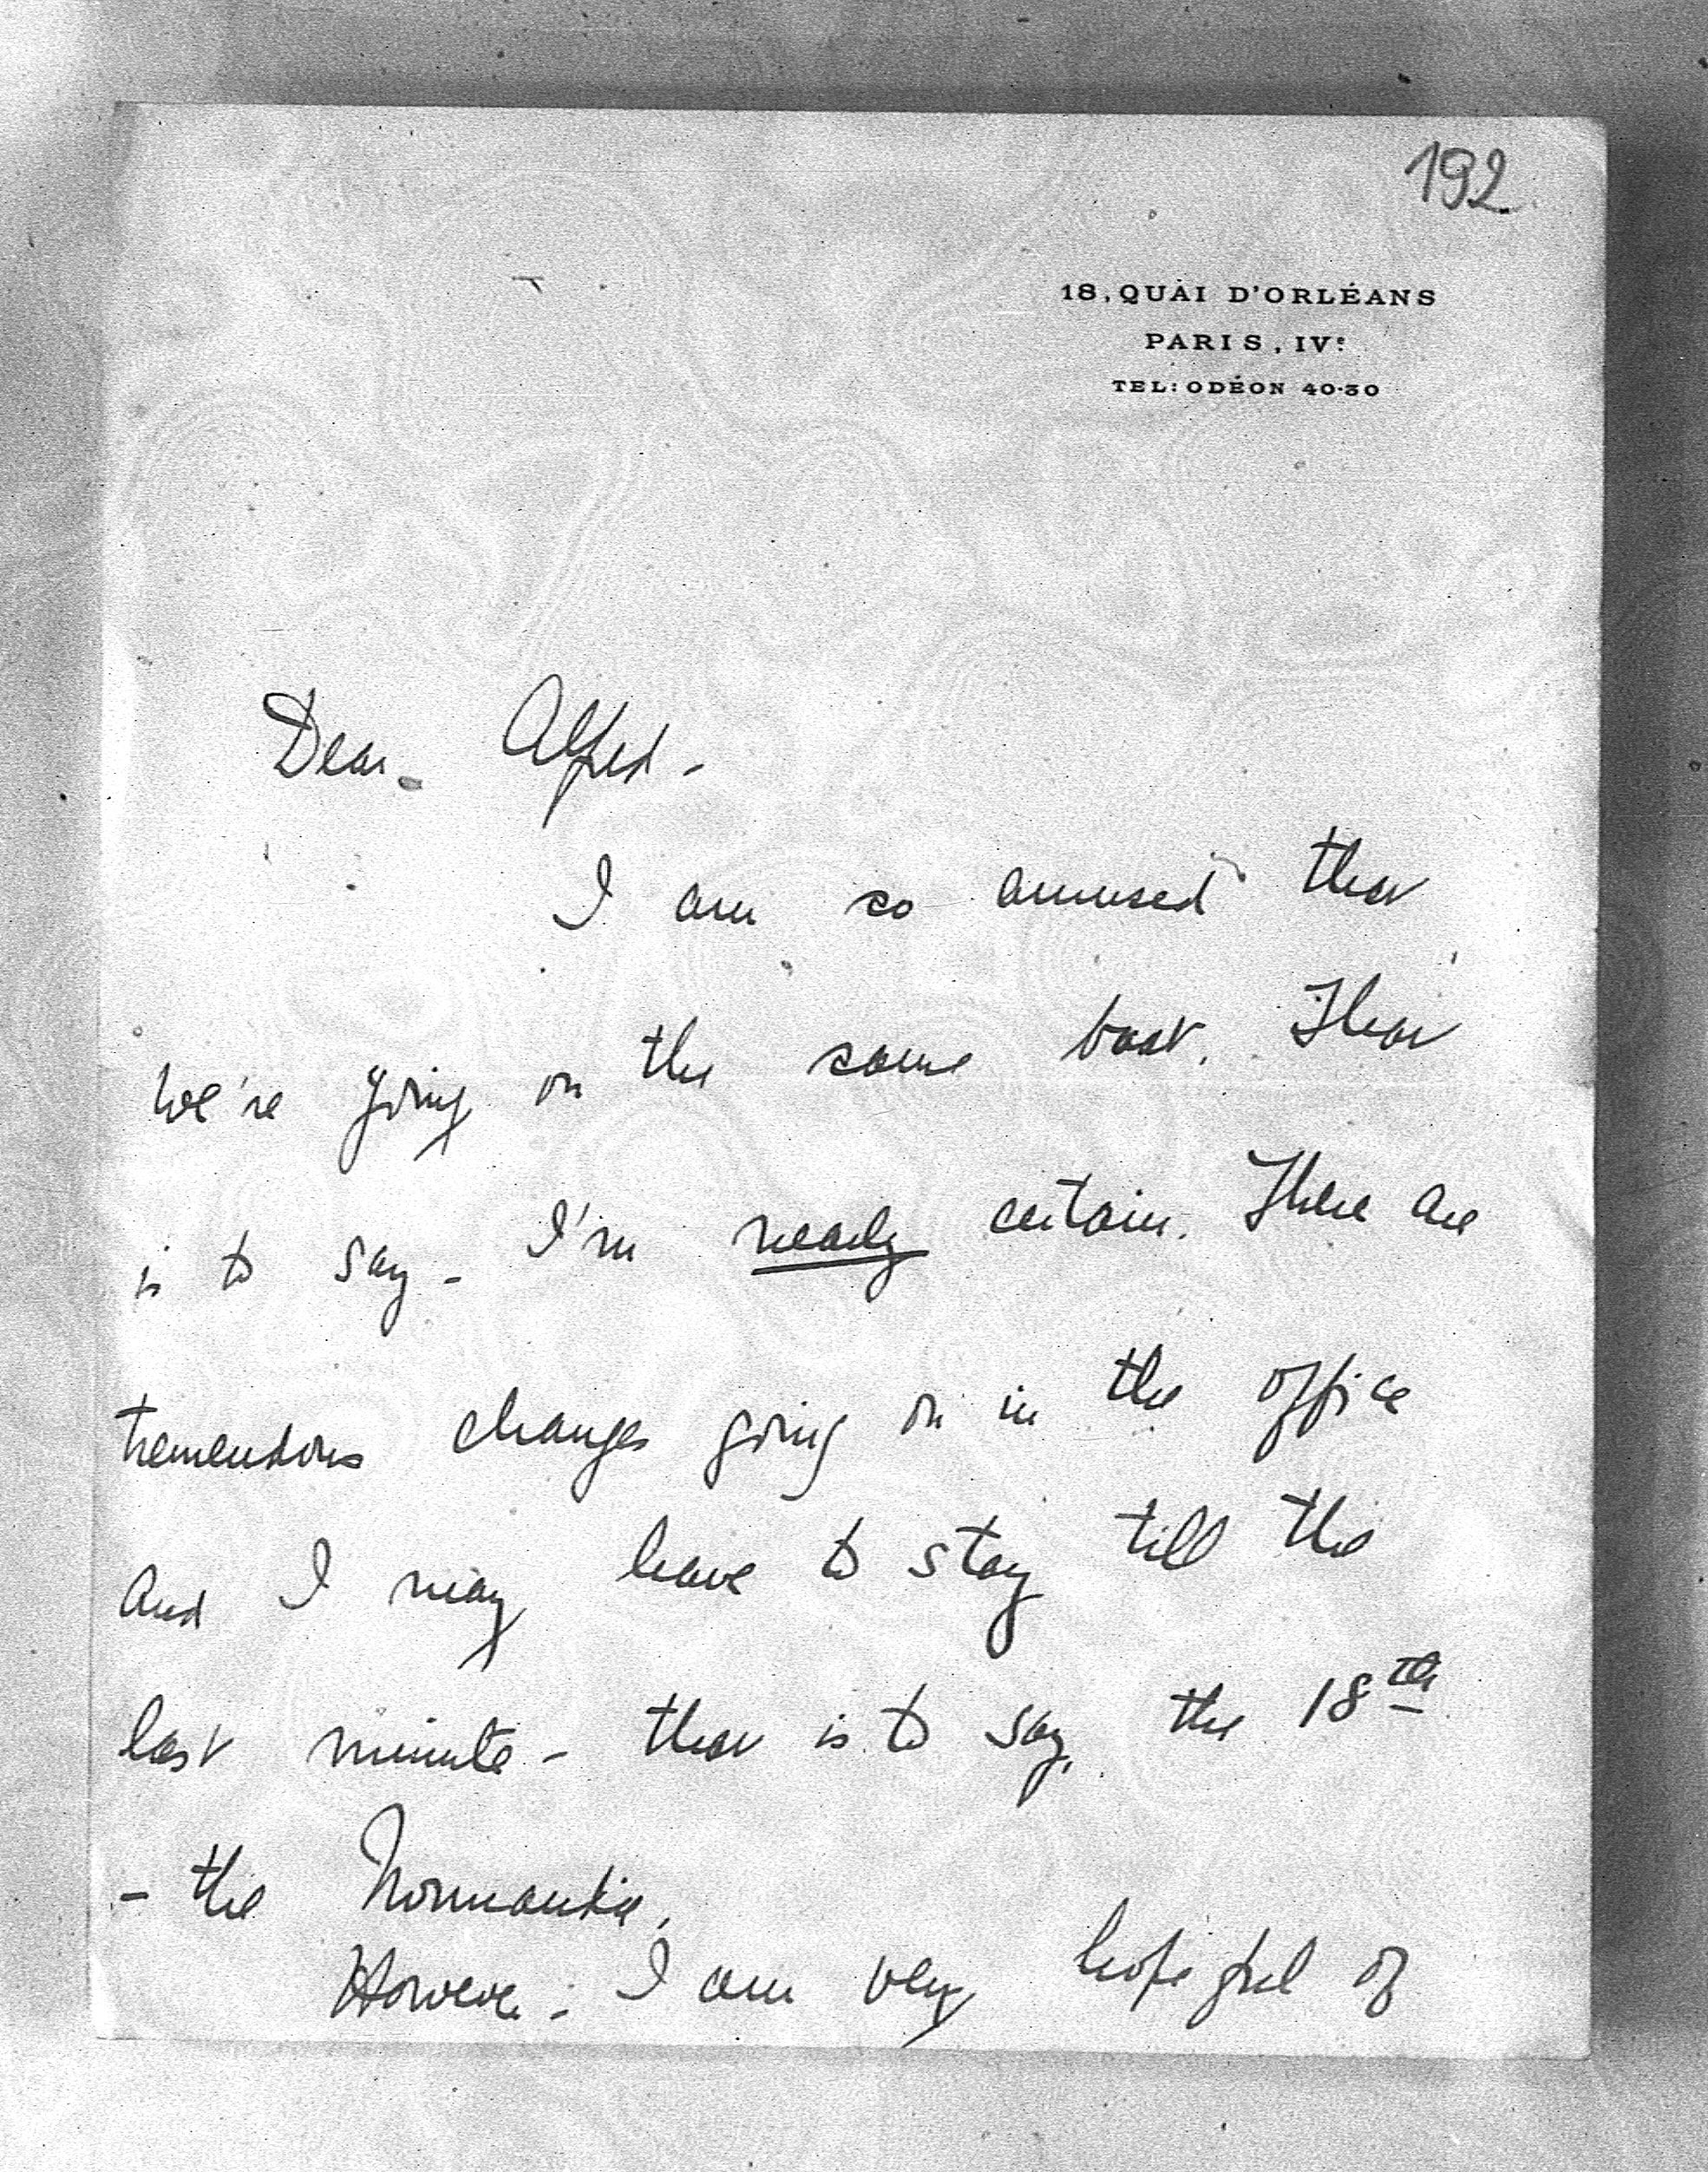 192
18, QUAI D'ORLÉANS
PARIS, IVe
TEL: ODÉON 40-30
Dear Alfred -
I am so amused that
we're going on the same boat. That
is to say - I'm nearly certain. There are
tremendous changes going on in the office
and I may have to stay till the
last minute - that is to say, the 18th
- the Normandie.
However - I am very hopeful of